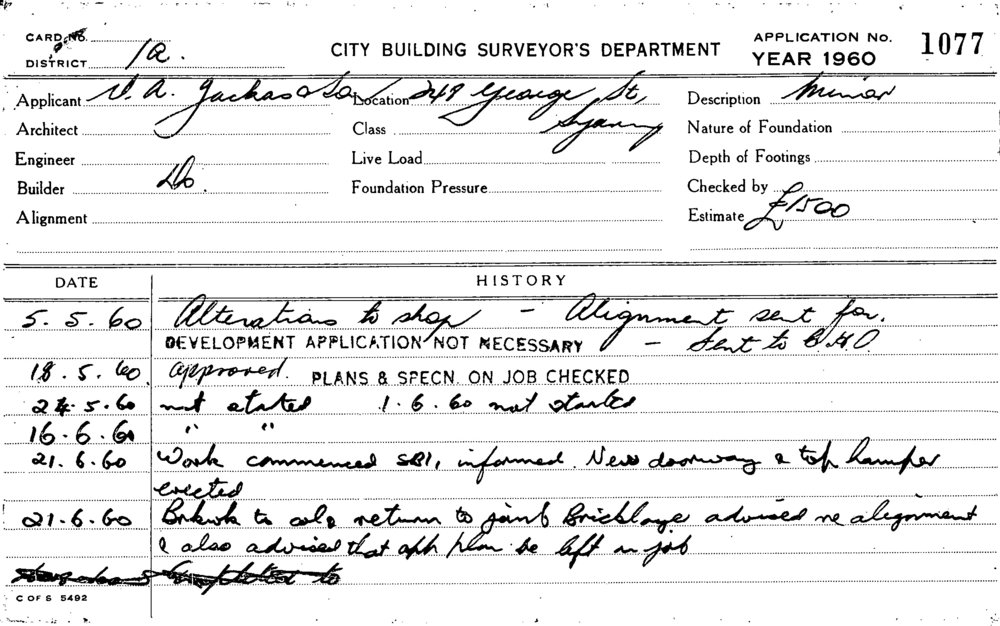 CARD No.
DISTRICT 1A.
CITY BUILDING SURVEYOR'S DEPARTMENT
APPLICATION No. 1077
YEAR 1960
Applicant V. A. & Location 249 George St,
Sydney
Description Minor
Architect
Class
Nature of Foundation
Engineer
Live Load
Depth of Footings
Builder Do.
Foundation Pressure
Checked by
Alignment
Estimate £1500
DATE
HISTORY
5.5.60 Alterations to shop - Alignment sent for.
DEVELOPMENT APPLICATION NOT NECESSARY - Sent to
18.5.60 approved. PLANS & SPECN. ON JOB CHECKED
24.5.60 not started 1.6.60 not started
16.6.60 " "
21.6.60 Work commenced SBI, informed. New doorway & top hamper
erected
21.6.60 Brkwk to return to advised re alignment
& also advised that plan be left on job
C OF S 5492